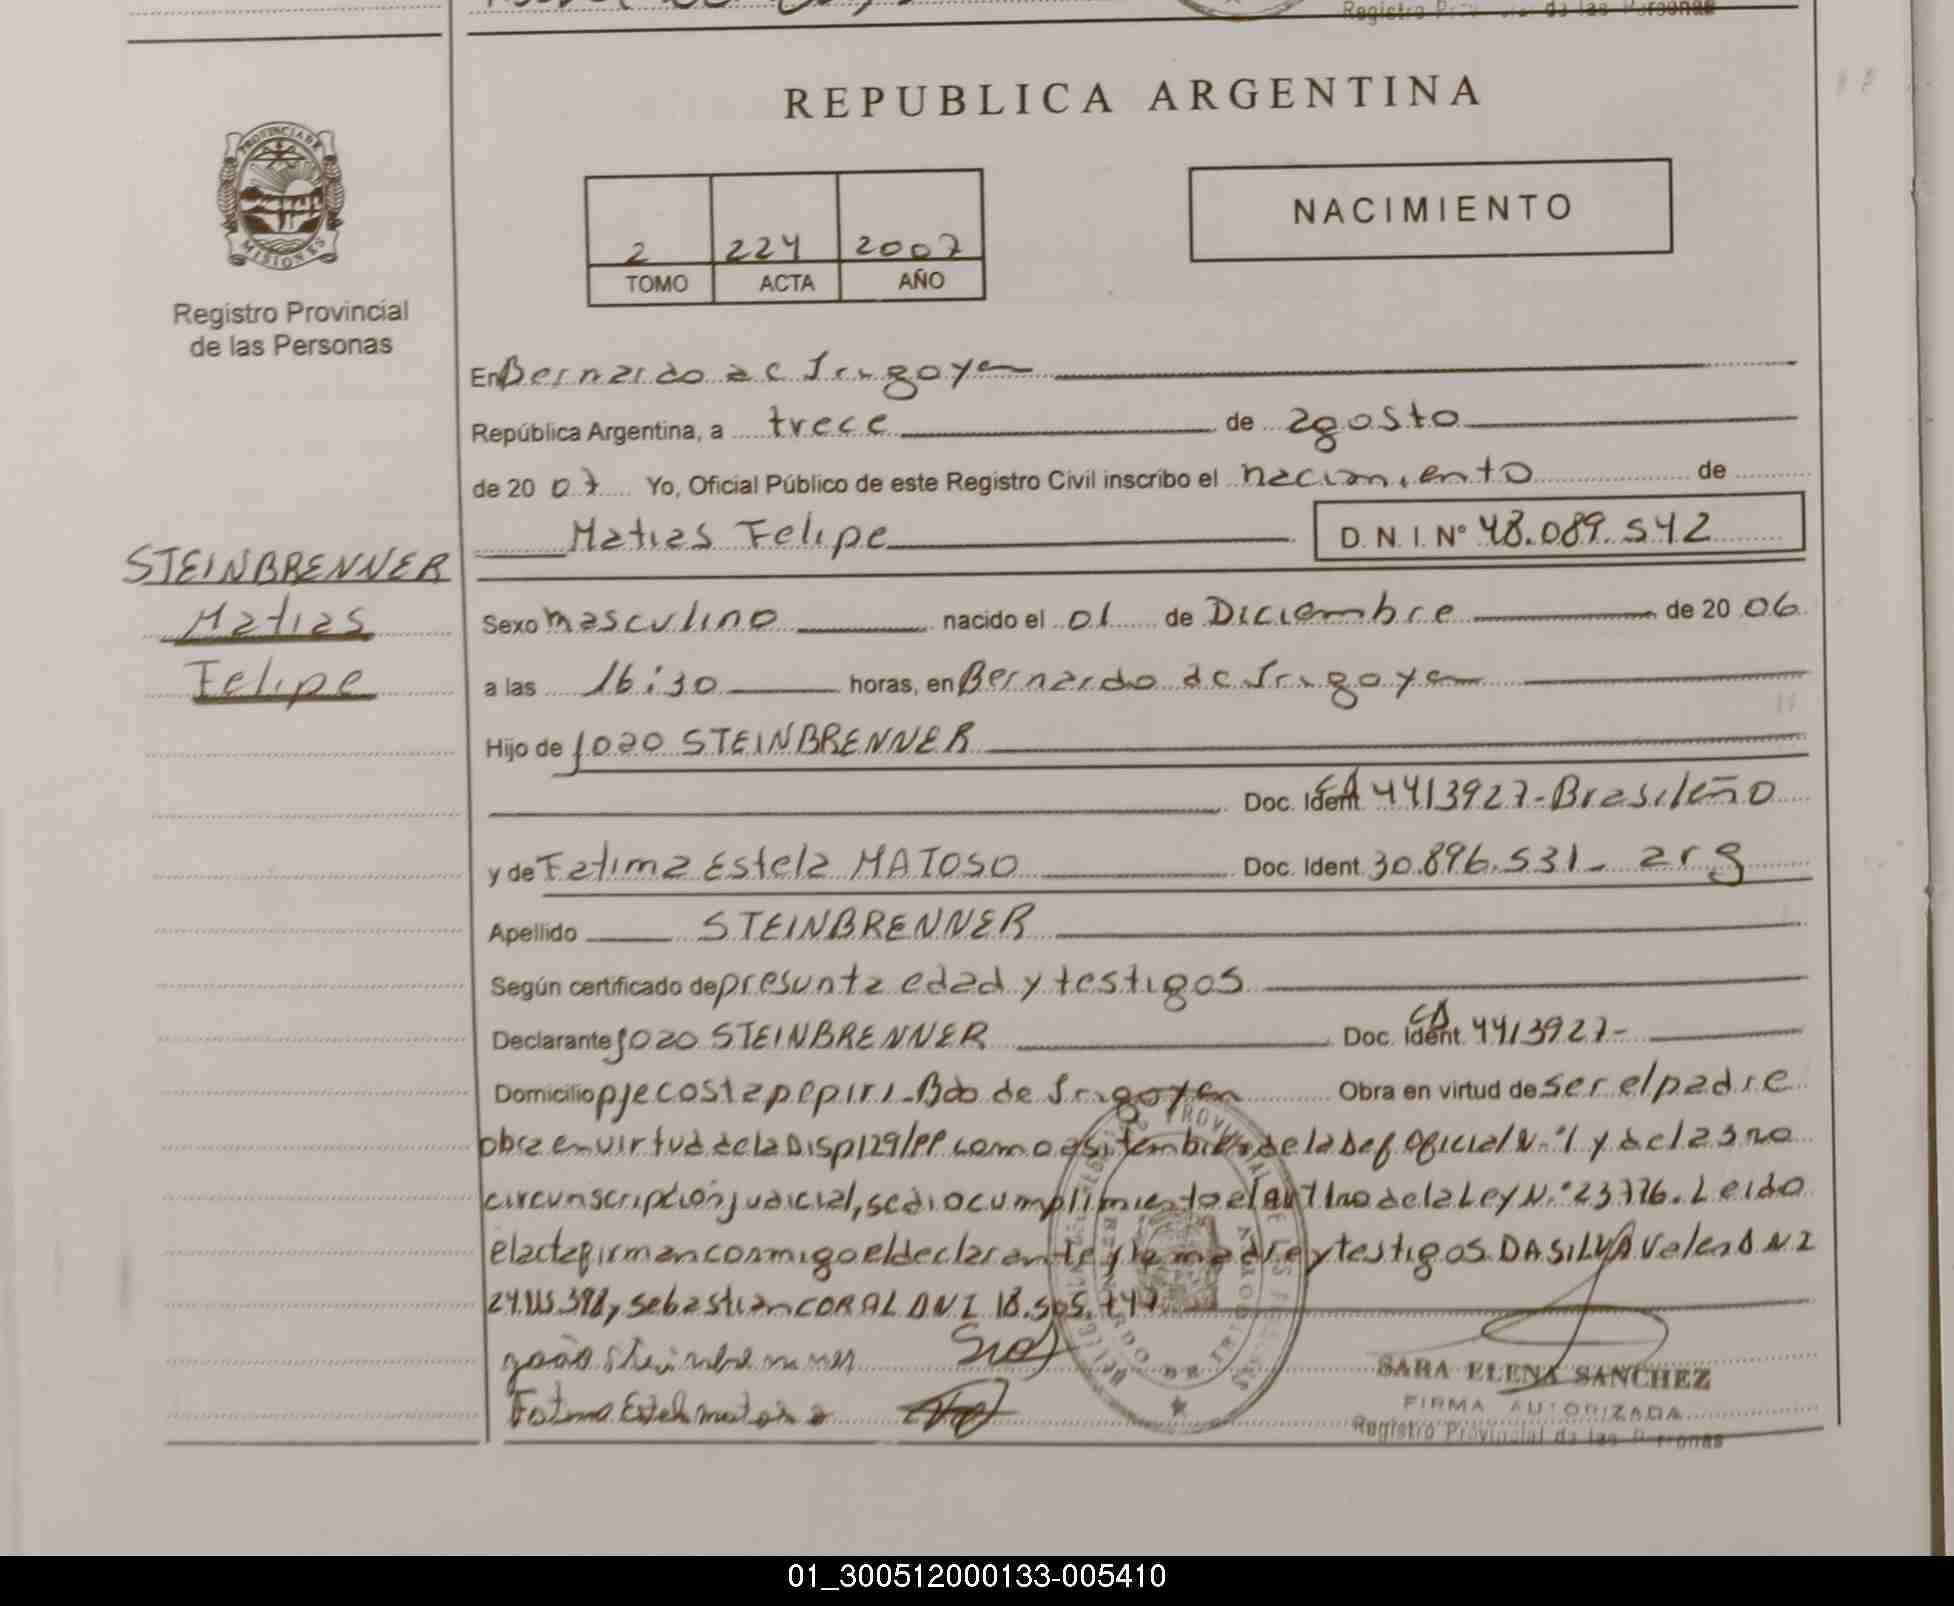 Registro Provincial de las Personas
REPUBLICA ARGENTINA
PROVINCIA DE
MISIONES
Registro Provincial
de las Personas
2 224 2007
TOMO ACTA AÑO
NACIMIENTO
En Bernardo de Irigoyen
República Argentina, a trece de agosto
de 20 07 Yo, Oficial Público de este Registro Civil inscribo el nacimiento de
Matias Felipe D.N.I. Nº 48.089.542
STEINBRENNER
Matias
Felipe
Sexo masculino nacido el 01 de Diciembre de 20 06
a las 16:30 horas, en Bernardo de Irigoyen
Hijo de Joao STEINBRENNER
Doc. Ident. CA 4413927-Brasileño
y de Fatima Estela MATOSO Doc. Ident. 30.896.531- arg
Apellido STEINBRENNER
Según certificado de presunta edad y testigos
Declarante Joao STEINBRENNER Doc. Ident. 4413927-
Domicilio pje costa pepiri-Bdo de Irigoyen Obra en virtud de ser el padre
obra en virtud de la Disp 129/PP como asi tembien de la Def Oficial N.º 1 y de la 3ra
circunscripción judicial, se dio cumplimiento el art 1ro de la Ley N.º 23776. Leido
el acta firman conmigo el declarante y la madre y testigos DA SILVA Valen D N I
24.115.398, sebastian CORAL D N I 18.505.747
joão steinbrenner
Fatima Estela matoso
SARA ELENA SANCHEZ
FIRMA AUTORIZADA
Registro Provincial de las Personas
01_300512000133-005410